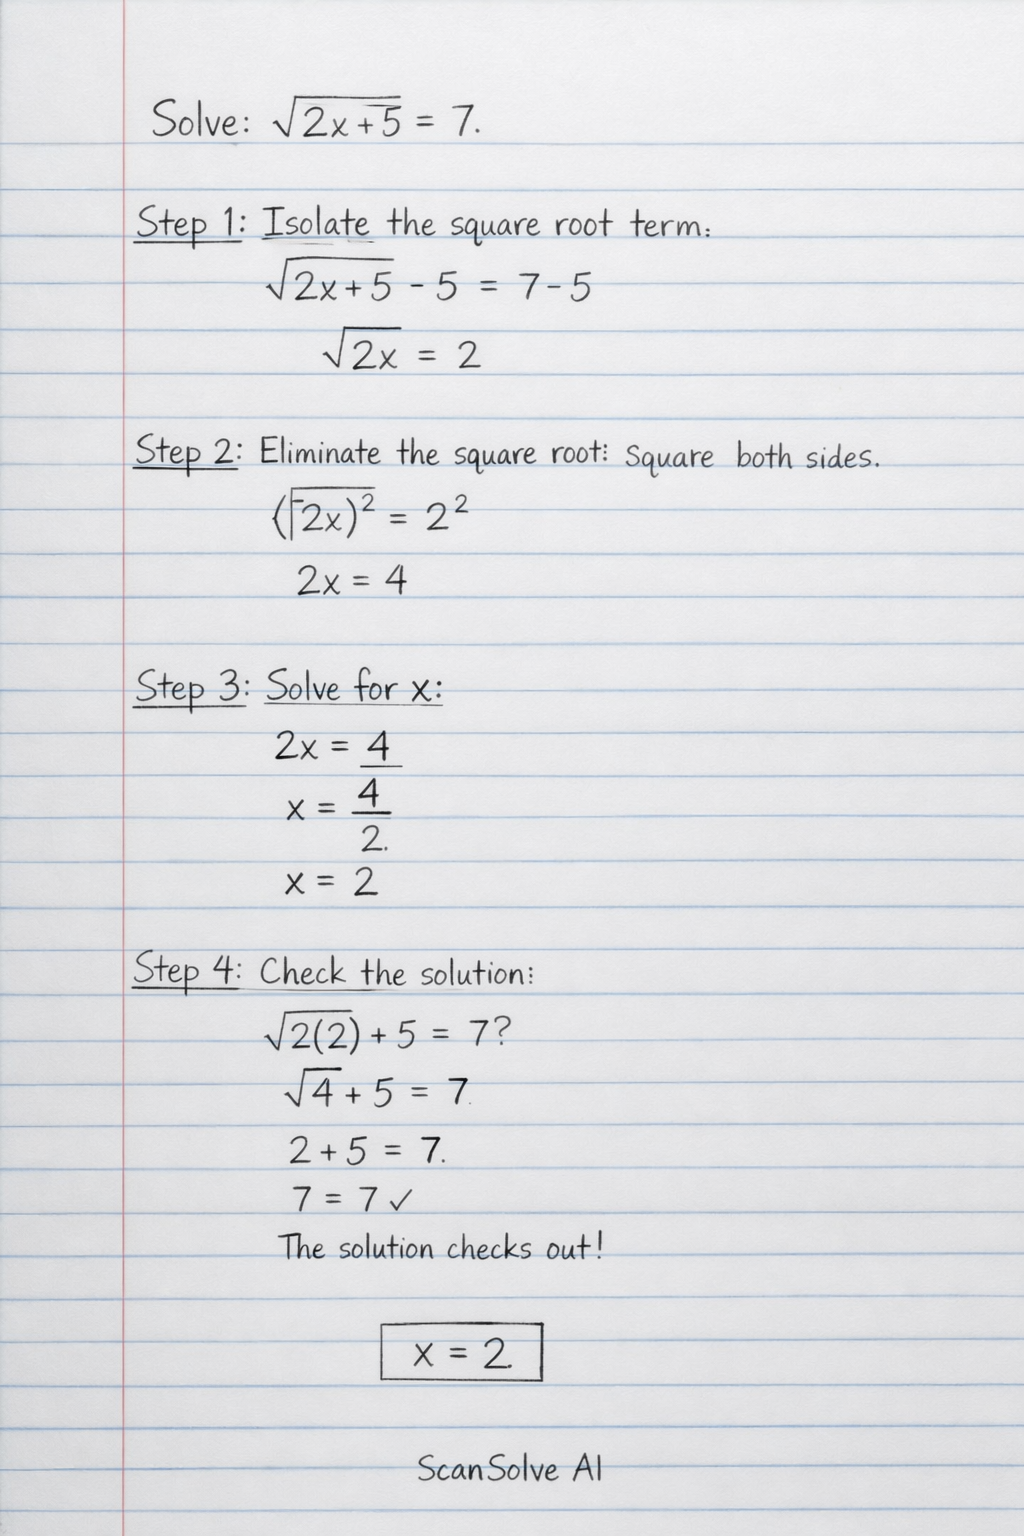 Solve: √(2x+5) = 7.
Step 1: Isolate the square root term:
√(2x+5) - 5 = 7-5
√(2x) = 2
Step 2: Eliminate the square root: Square both sides.
(√2x)² = 2²
2x = 4
Step 3: Solve for x:
2x = 4
x = 4/2.
x = 2
Step 4: Check the solution:
√(2(2)) + 5 = 7?
√4 + 5 = 7
2 + 5 = 7.
7 = 7 ✓
The solution checks out!
x = 2
ScanSolve AI